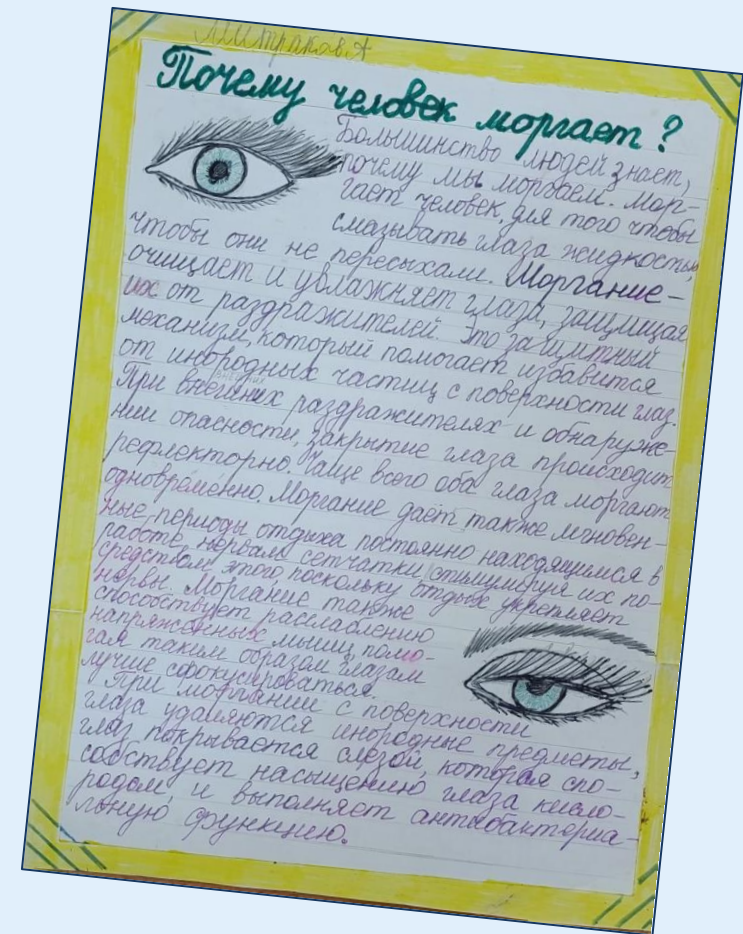 Митраков. А
Почему человек моргает?
Большинство людей знает,
почему мы моргаем. Мор-
гает человек, для того чтобы
смазывать глаза жидкостью,
чтобы они не пересыхали. Моргание -
очищает и увлажняет глаза, защищая
их от раздражителей. Это защитный
механизм, который помогает избавится
от инородных частиц с поверхности глаз.
При внешних раздражителях и обнаруже-
нии опасности, закрытие глаза происходит
рефлекторно. Чаще всего оба глаза моргают
одновременно. Моргание даёт также мгновен-
ные периоды отдыха постоянно находящимся в
работе нервам сетчатки, стимулируя их по-
средством этого, поскольку отдых укрепляет
нервы. Моргание также
способствует расслаблению
напряжённых мышц, помо-
гая таким образом глазам
лучше сфокусироваться.
При моргании с поверхности
глаза удаляются инородные предметы,
глаз покрывается слезой, которая спо-
собствует насыщению глаза кисло-
родом, и выполняет антибактериа-
льную функцию.